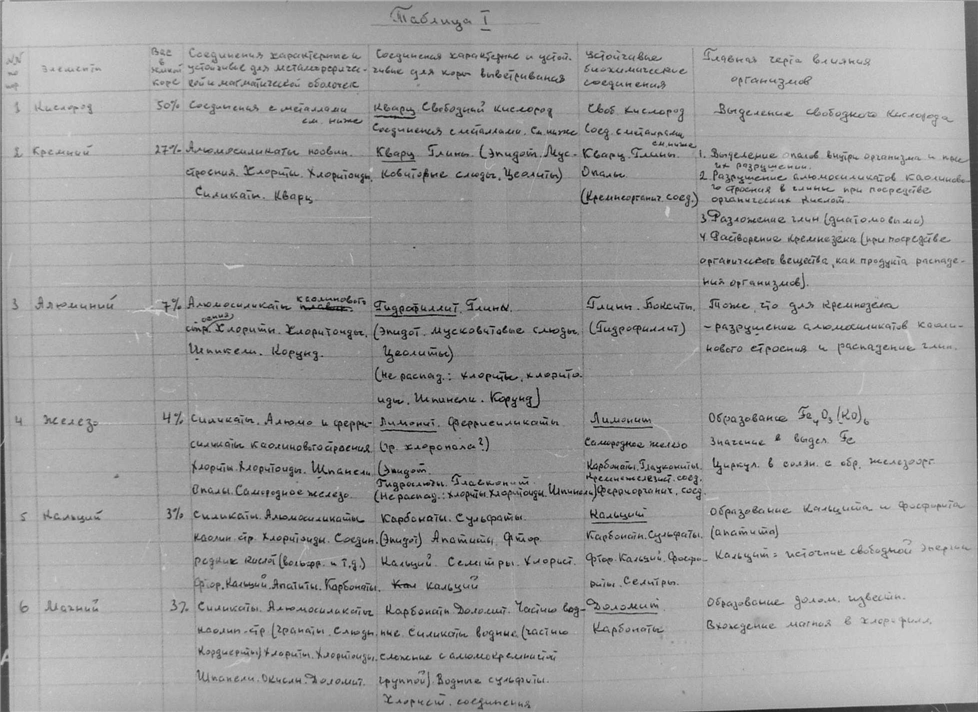 Таблица I
№№ пп
Элементы
Вес в земной коре
Соединения характерные и устойчивые для метаморфической и магматической оболочек
Соединения характерные и устойчивые для коры выветривания
Устойчивые биохимические соединения
Главная черта влияния организмов
1 Кислород 50% Соединения с металлами см. ниже
Кварц Свободный кислород
Соединения с металлами. См. ниже
Своб кислород
Соед. с металлами см. ниже
Выделение свободного кислорода
2 Кремний 27% Алюмосиликаты
строения. Хлориты. Хлоритоиды,
Силикаты. Кварц
Кварц Глины. (Эпидот. Мус-
ковитовые слюды, Цеолиты)
Кварц. Глины.
Опалы
(Кремнеорганич. соед.)
1. Выделение опалов внутри организма и после
их разрушения.
2. Разрушение алюмосиликатов каолиново-
го строения в глины при посредстве
органических кислот.
3 Разложение глин (диатомовыми)
4. Растворение кремнезема (при посредстве
органического вещества, как продукта распаде-
ния организмов).
3 Алюминий 7% Алюмосиликаты каолинового
стр. Хлориты. Хлоритоиды.
Шпинели. Корунд.
Гидрофиллит. Глины.
(Эпидот. Мусковитовые слюды.
Цеолиты)
(Не распад.: хлориты, хлорито-
иды, Шпинели. Корунд)
Глины. Бокситы.
(Гидрофиллит)
Тоже, что для кремнезема
- разрушение алюмосиликатов каоли-
нового строения и распадение глин.
4 Железо 4% Силикаты. Алюмо и ферри-
силикаты каолинового строения
Хлориты. Хлоритоиды. Шпинели
Опалы. Самородное железо.
Лимонит. Феррисиликаты
(гр. хлоропала?)
(Эпидот.
(Не распад.: Хлориты Хлоритоиды. Шпинели)
Лимониты
Самородное железо
Карбонаты. Глаукониты.
Кремнежелезист. соед.
Феррорганич. соед.
Образование Fe₄O₃(HO)₆
Значение в выдел. Fe
Циркул. в солян. с обр. железоорг
5 Кальций 3% Силикаты. Алюмосиликаты
каолин. стр. Хлоритоиды. Соедин.
редких кислот (вольфр. и т.д.)
Фтор. Кальций. Апатиты. Карбонаты.
Карбонаты. Сульфаты.
(Эпидот) Апатиты. Фтор.
Кальций. Селитры. Хлорист.
кальций
Кальцит
Карбонаты. Сульфаты.
Фтор. Кальций. Фосфо-
риты. Селитры.
Образование Кальцита и Фосфорита
(апатита)
Кальций = источник свободной энергии
6 Магний 3% Силикаты. Алюмосиликаты
каолин. стр. (гранаты. Слюды.
Кордиериты) Хлориты. Хлоритоиды.
Шпинели. Окислы. Доломит.
Карбонаты Доломит. Частию вод-
ные Силикаты водные (частию
сложение с алюмокремнистой
группой). Водные сульфаты.
Хлорист. соединения
Доломит
Карбонаты
Образование долом. известн.
Вхождение магния в хлорофилл.